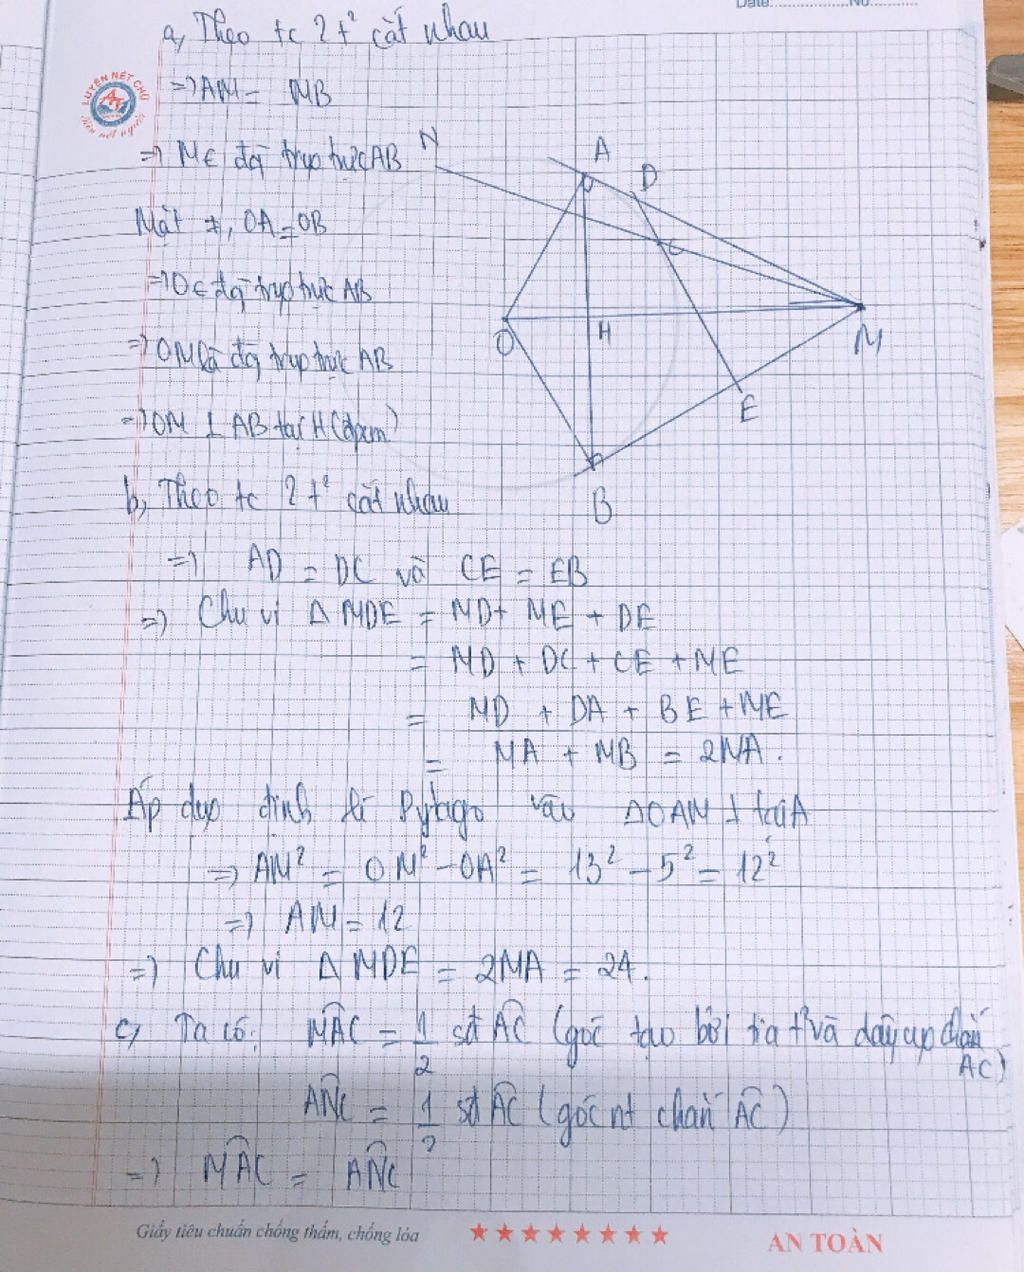 Date:..................No..........
a, Theo tc 2 t² cắt nhau
LUYỆN NÉT CHỮ
rèn nết người
=> AM = MB
=> M ∈ đg trug trực AB
Mặt ≠, OA = OB
=> O ∈ đg trug trực AB
=> OM là đg trug trực AB
=> OM ⊥ AB tại H (đpcm)
N
A
D
O
H
M
E
B
b, Theo tc 2 t² cắt nhau
=> AD = DC và CE = EB
=> Chu vi Δ MDE = MD + ME + DE
= MD + DC + CE + ME
= MD + DA + BE + ME
= MA + MB = 2MA.
Áp dụg định lí Pytago vào ΔOAM ⊥ tại A
=> AM² = OM² - OA² = 13² - 5² = 12²
=> AM = 12
=> Chu vi Δ MDE = 2MA = 24.
c, Ta có: MAC = 1/2 sđ AC (góc tạo bởi tia t² và dây cug chắn AC)
ANC = 1/2 sđ AC (góc nt chắn AC)
=> MAC = ANC
Giấy tiêu chuẩn chống thấm, chống lóa
AN TOÀN